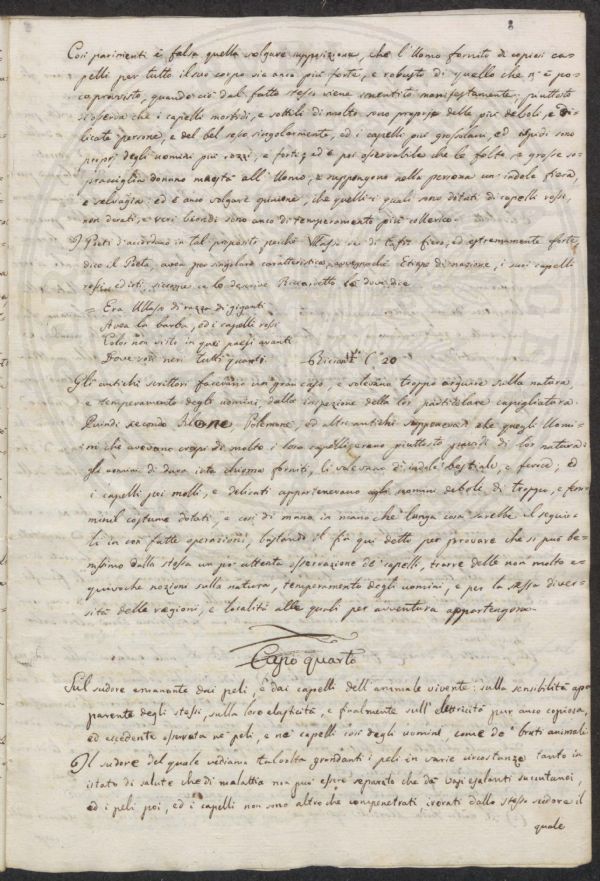 8
Così parimenti è falsa quella volgare supposizione, che l'Uomo fornito di copiosi ca-
pelli per tutto il suo corpo sia anco più forte, e robusto di quello che n'è po-
co provvisto, quando ciò dal fatto stesso viene smentito manifestamente, piuttosto
si osserva che i capelli morbidi, e sottili di molto sono proprj delle più deboli, e de-
licate persone, e del bel sesso singolarmente, ed i capelli più grossolani, ed ispidi sono
proprj degli uomini più rozzi, e forti; ed è per osservabile che le folte, e grosse so-
praciglia donano maestà all'Uomo, e suppongono nella persona un'indole fiera,
e selvaggia: ed è anco volgare opinione, che quelli i quali sono dotati di capelli rossi,
non dorati, e veri biondi sono anco di temperamento più collerico.
I Poeti d'accordano in tal proposito perchè Ulasso era di fiero, ed estremamente forte
dice il Poeta, avea per singolare caratteristica, Etiope di nazione, i suoi capelli
rossi, siccome ce lo descrive Ricciardetto là dove dice
= Era Ulasso di razza di giganti
Avea la barba, ed i capelli rossi
Color non visto in quei paesi avanti
Dove son neri tutti quanti. C. 20
Gli antichi scrittori facevano un gran caso, e solevano troppo arguire sulla natura,
e temperamento degli uomini, dalla inspezione della lor particolare capigliatura.
Quindi secondo Polemone, ed altri antichi supponevasi che quegli Uomi-
ni che avevano crespi di molto i loro capelli, erano piuttosto di lor natura:
gli uomini di dura, irta chioma forniti, li volevano di indole bestiale, e feroce; ed
i capelli poi molli, e delicati appartenevano agli uomini deboli di troppo, e fem-
minil costume dotati, e così di mano in mano che lunga cosa sarebbe il seguir-
li in con fatte operazioni, bastando il fin qui detto per provare che si può be-
nissimo dalla stessa un po' attenta osservazione de' capelli, trarre delle non molto e-
quivoche nozioni sulla natura, temperamento degli uomini, e per la stessa diver-
sità delle regioni, e località alle quali per avventura appartengono.
Capo quarto
Sul sudore emanante dai peli, e dai capelli dell'animale vivente: sulla sensibilità ap-
parente degli stessi, sulla loro elasticità, e finalmente sull'elettricità pur anco copiosa,
ed eccedente osservata ne' peli, e ne' capelli così degli uomini, come de' bruti animali.
Il sudore del quale vediamo talvolta grondanti i peli in varie circostanze tanto in
istato di salute che di malattia non può essere separato che da' vasi esalanti succutanei,
ed i peli poi, ed i capelli non sono altro che compenetrati irorati dallo stesso sudore il
quale